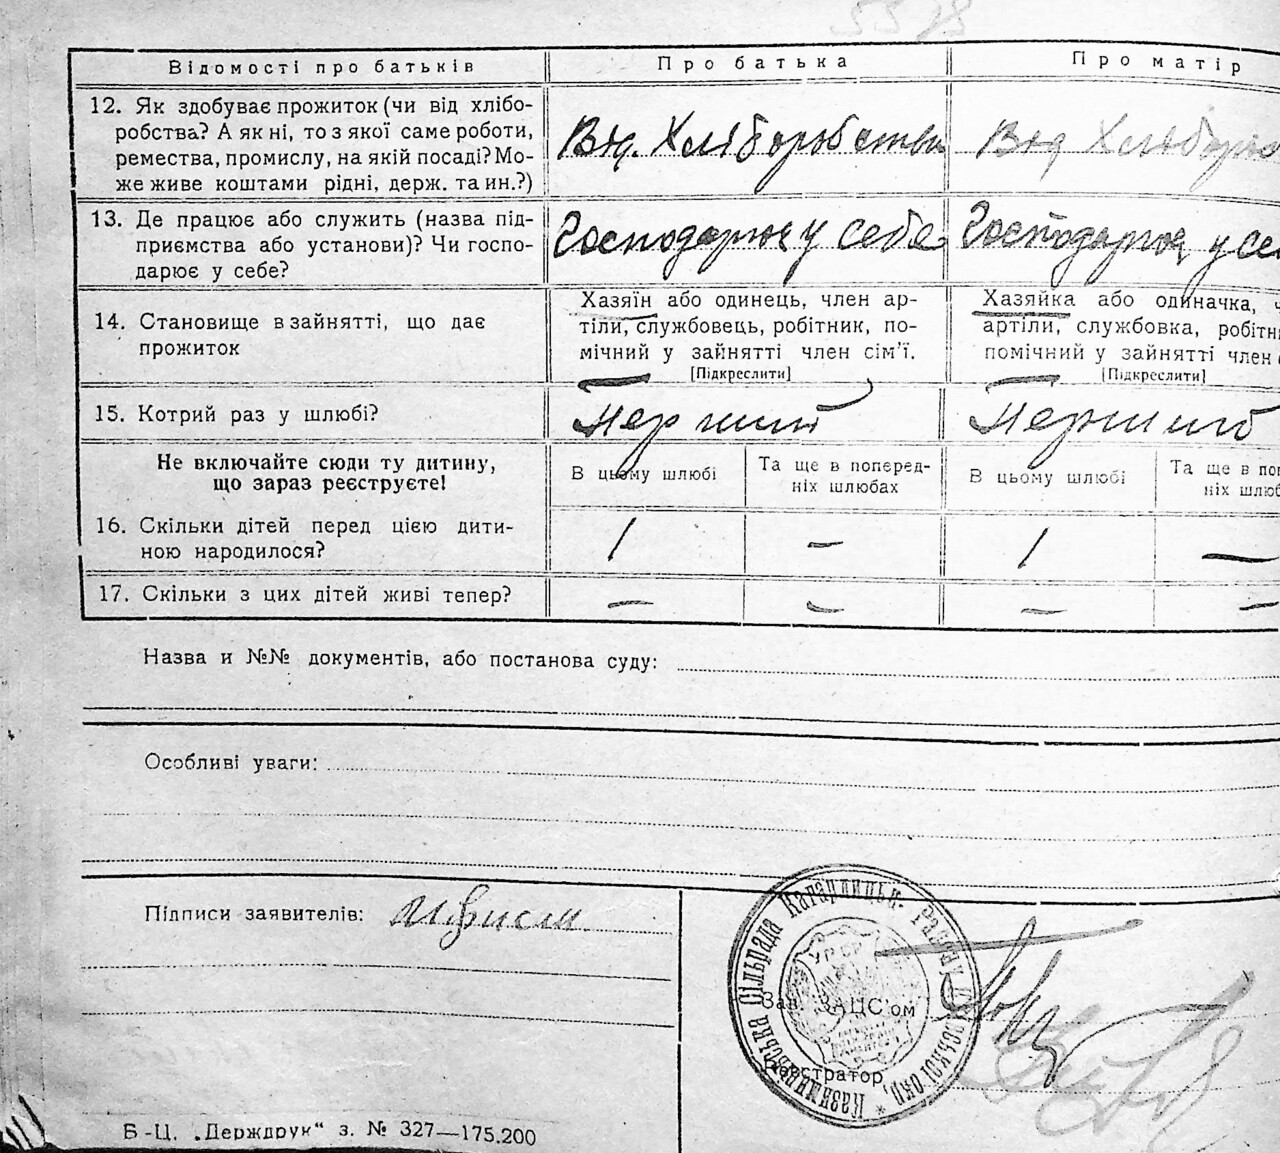 Відомості про батьків
Про батька
Про матір
12. Як здобуває прожиток (чи від хлібо-
робства? А як ні, то з якої саме роботи,
ремества, промислу, на якій посаді? Мо-
же живе коштами рідні, держ. та ин.?)
Від. Хліборобства
Від Хлібороб
13. Де працює або служить (назва під-
приємства або установи)? Чи госпо-
дарює у себе?
Господарює у себе
Господарює у се
14. Становище в зайнятті, що дає
прожиток
Хазяїн або одинець, член ар-
тіли, службовець, робітник, по-
мічний у зайнятті член сім'ї.
[Підкреслити]
Хазяйка або одиначка, ч
артіли, службовка, робітн
помічний у зайнятті член с
[Підкреслити]
15. Котрий раз у шлюбі?
Перший
Перший
Не включайте сюди ту дитину,
що зараз реєструєте!
В цьому шлюбі
Та ще в поперед-
ніх шлюбах
В цьому шлюбі
Та ще в поп
ніх шлюб
16. Скільки дітей перед цією дити-
ною народилося?
1
—
1
—
17. Скільки з цих дітей живі тепер?
—
—
—
—
Назва и №№ документів, або постанова суду:
Особливі уваги:
Підписи заявителів:
Сільрада Кагарлицьк. Району Київської окр.
УРСР
Зав. ЗАЦС'ом
Реєстратор
Б-Ц. „Держдрук“ з. № 327—175.200